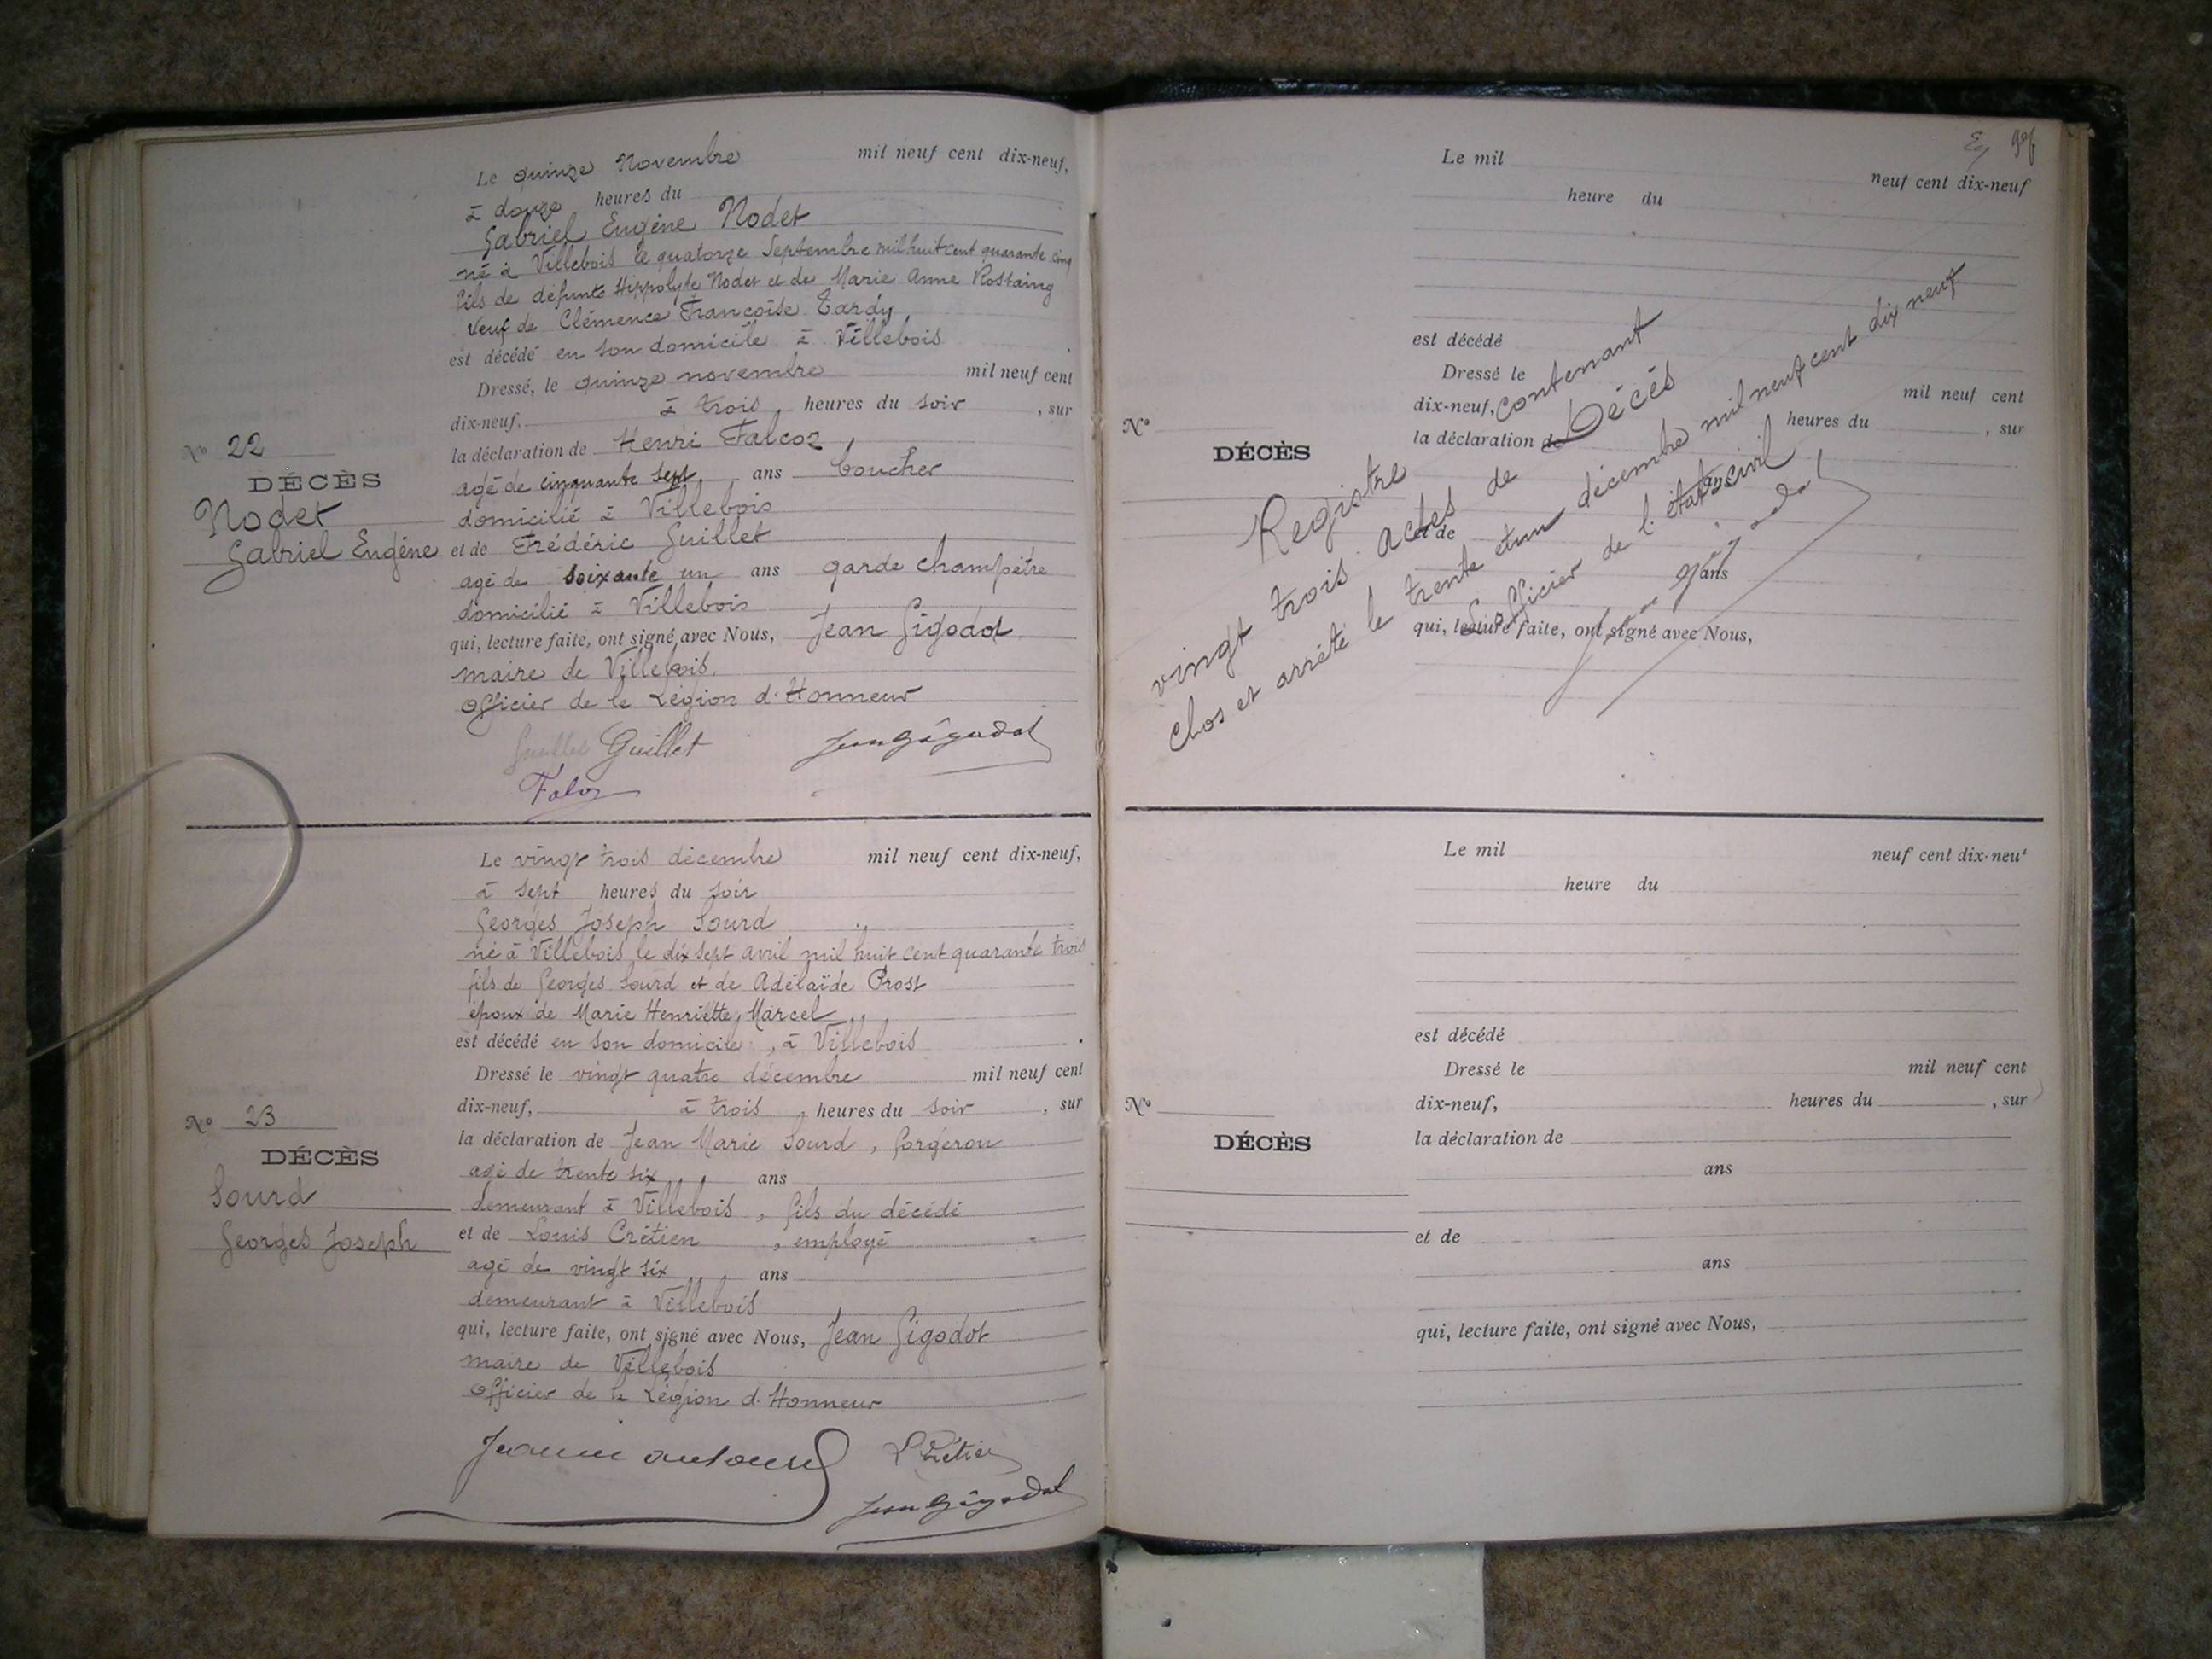 Le quinze Novembre mil neuf cent dix-neuf,
à douze heures du
Gabriel Eugène Nodet
né à Villebois le quatorze Septembre mil huit cent quarante cinq
fils de défunts Hippolyte Nodet et de Marie Anne Rostaing
Veuf de Clémence Françoise Tardy
est décédé en son domicile à Villebois
Dressé, le quinze novembre mil neuf cent
dix-neuf, à trois heures du soir, sur
la déclaration de Henri Falcoz,
agé de cinquante sept ans boucher
domicilié à Villebois
et de Frédéric Guillet
agé de soixante un ans garde champêtre
domicilié à Villebois
qui, lecture faite, ont signé avec Nous, Jean Gigodot
maire de Villebois.
Officier de la Légion d'Honneur
Guillet Jean Gigodot
No 22
DÉCÈS
Nodet
Gabriel Eugène
Le vingt trois décembre mil neuf cent dix-neuf,
à sept heures du soir
Georges Joseph Sourd
né à Villebois le dix sept avril mil huit cent quarante trois
fils de Georges Sourd et de Adélaïde Prost
époux de Marie Henriette Marcel
est décédé en son domicile, à Villebois.
Dressé le vingt quatre décembre mil neuf cent
dix-neuf, à trois, heures du soir, sur
la déclaration de Jean Marie Sourd, forgeron
agé de trente six ans
demeurant à Villebois, fils du décédé
et de Louis Crétien, employé
agé de vingt six ans
demeurant à Villebois
qui, lecture faite, ont signé avec Nous, Jean Gigodot
maire de Villebois
Officier de la Légion d'Honneur
Jean Gigodot
No 23
DÉCÈS
Sourd
Georges Joseph
Le mil neuf cent dix-neuf
heure du
est décédé
Dressé le mil neuf cent
dix-neuf, heures du, sur
la déclaration de
ans
et de
ans
qui, lecture faite, ont signé avec Nous,
No
DÉCÈS
Registre contenant
vingt trois actes de Décès
clos et arrêté le trente et un décembre mil neuf cent dix neuf
L'officier de l'état civil
Jean Gigodot
Le mil neuf cent dix-neuf
heure du
est décédé
Dressé le mil neuf cent
dix-neuf, heures du, sur
la déclaration de
ans
et de
ans
qui, lecture faite, ont signé avec Nous,
No
DÉCÈS